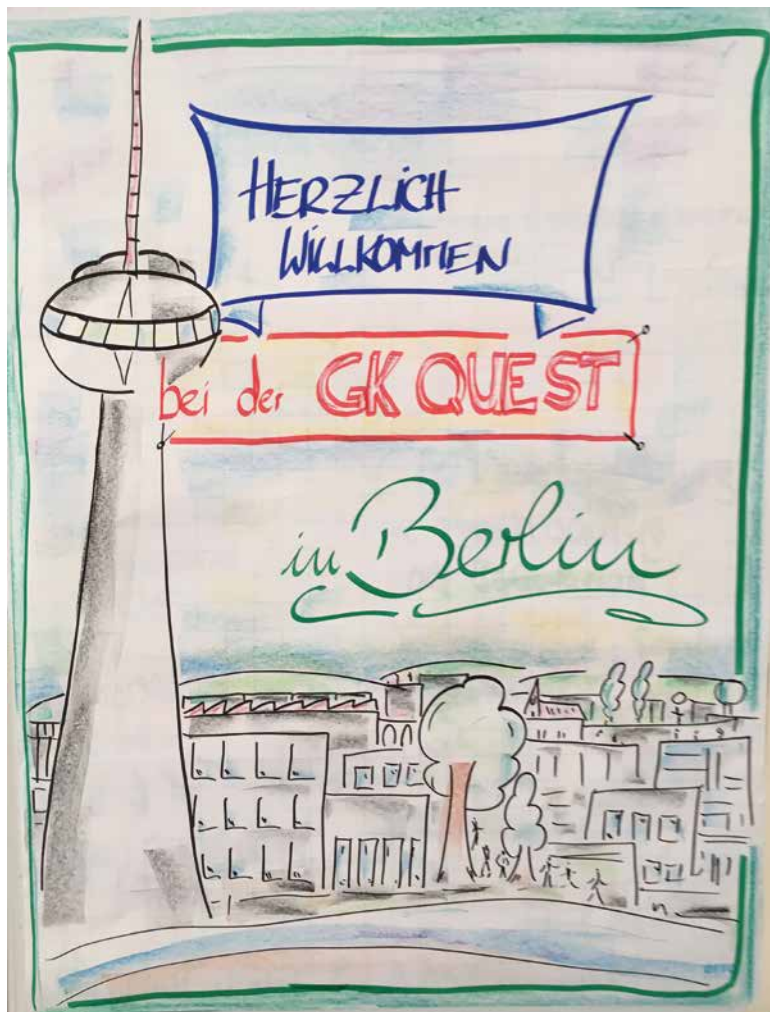 HERZLICH
WILLKOMMEN
bei der GK QUEST
in Berlin